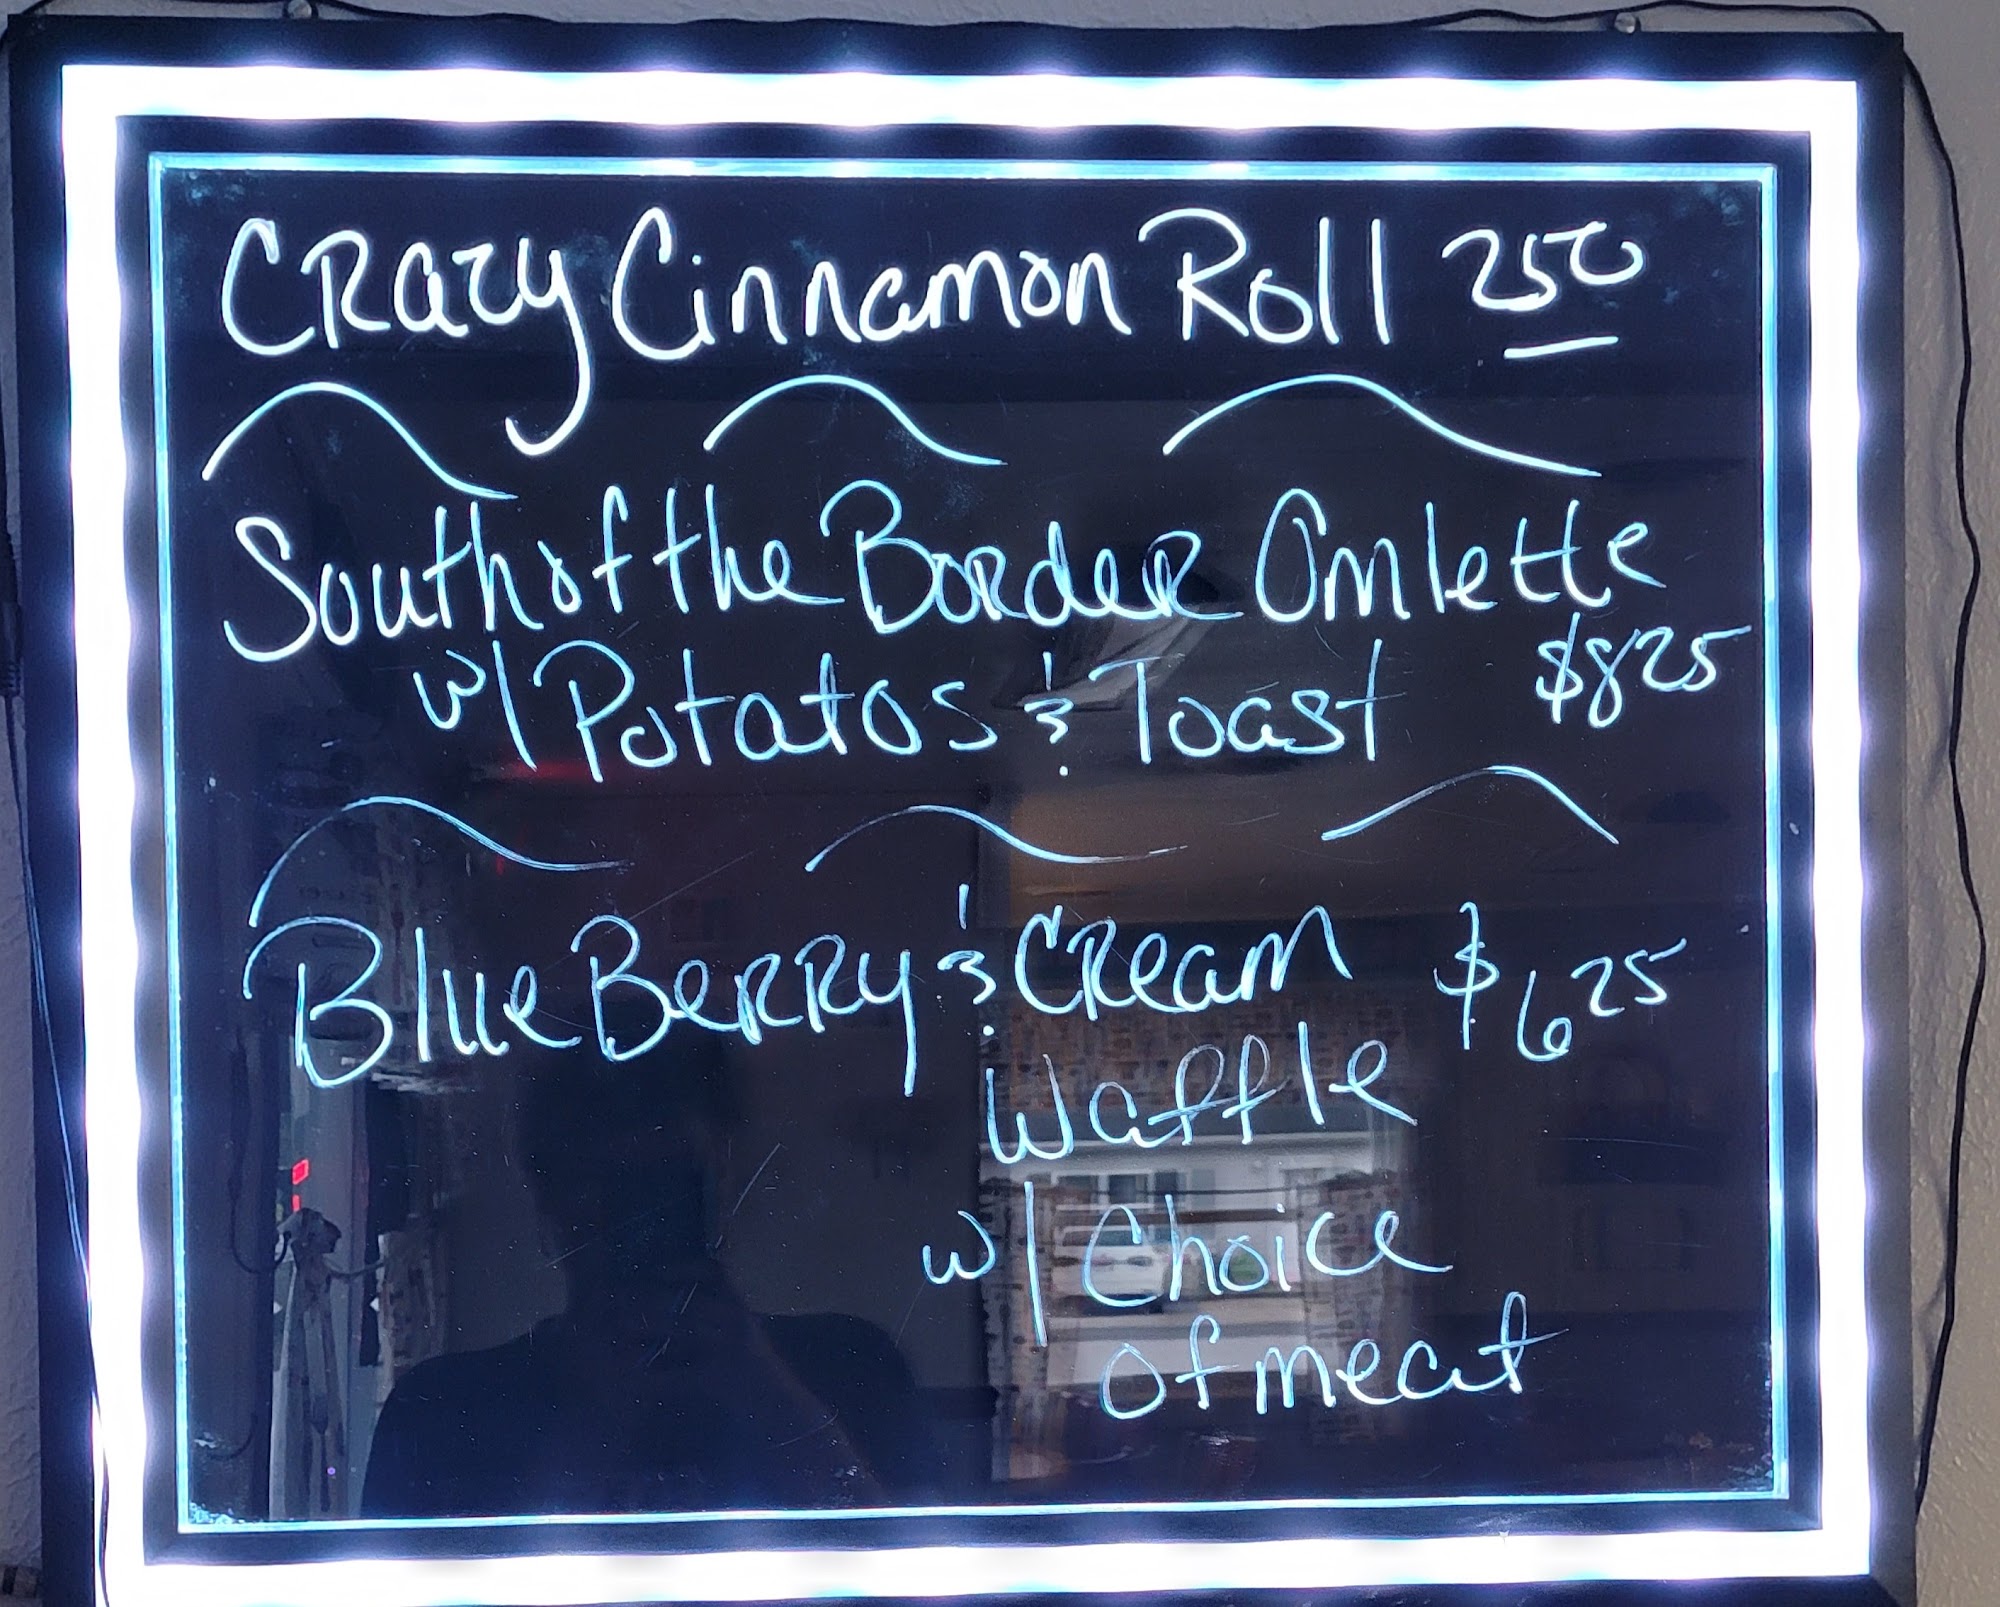 CRazy Cinnamon Roll 250
South of the BoRdeR Omlette
w/ Potatos & Toast $825
BlueBeRRy & CReam $625
Waffle
w/ Choice
of meat